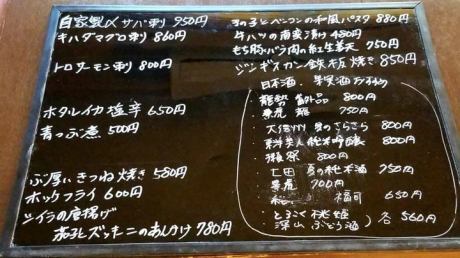 自家製〆サバ刺 950円
キハダマグロ刺 860円
トロサーモン刺 800円
ホタルイカ塩辛 650円
青つぶ煮 500円
ぶ厚いきつね焼き 580円
ホッケフライ 600円
シイラの唐揚げ
茄子とズッキーニのあんかけ 780円
きの子とベーコンの和風パスタ 880円
480円
もち豚バラ肉の紅生姜天 750円
ジンギスカン鉄板焼き 850円
日本酒、果実酒
800円
750円
大信州 夏のさらさら 800円
純米吟醸 800円
獺祭 800円
仁田 夏の純米酒 750円
700円
650円
とろこく桃姫
深山ぶどう酒
各560円